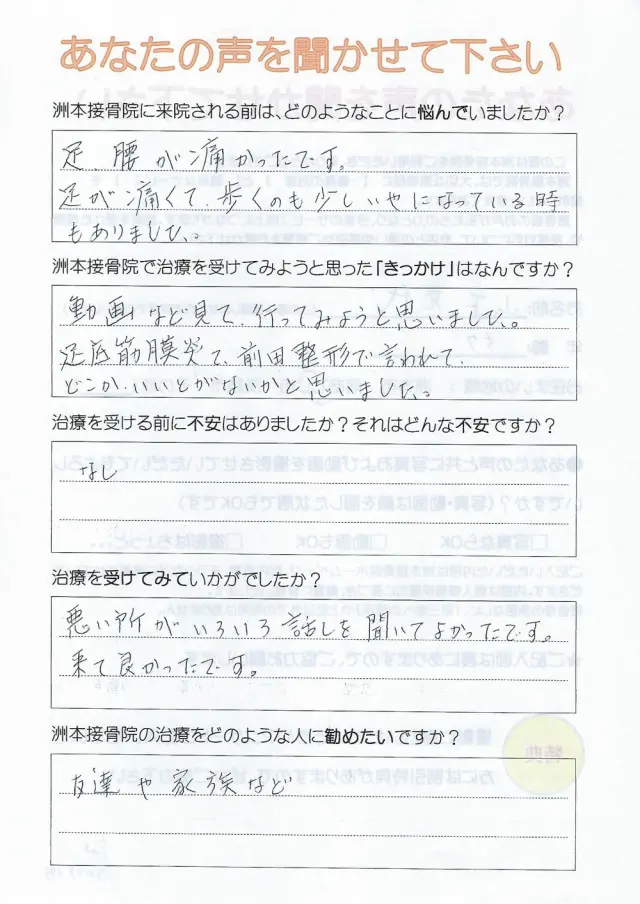 あなたの声を聞かせて下さい
洲本接骨院に来院される前は、どのようなことに悩んでいましたか？
足、腰が痛かったです。
足が痛くて、歩くのも少しいやになっている時
もありました。
洲本接骨院で治療を受けてみようと思った「きっかけ」はなんですか？
動画など見て、行ってみようと思いました。
足底筋膜炎で、前田整形で言われて、
どこか、いいとがないかと思いました。
治療を受ける前に不安はありましたか？それはどんな不安ですか？
なし
治療を受けてみていかがでしたか？
悪い所がいろいろ話しを聞いてよかったです。
来て良かったです。
洲本接骨院の治療をどのような人に勧めたいですか？
友達や家族など